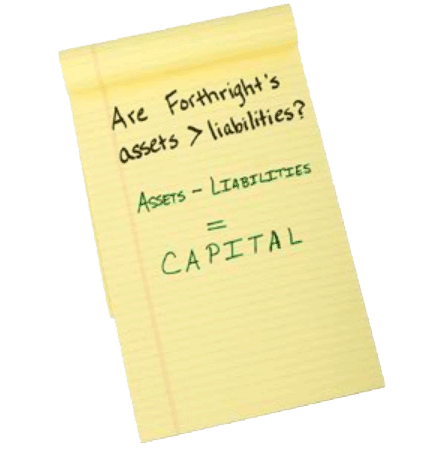 Are Forthright's
assets > liabilities?
ASSETS - LIABILITIES
=
CAPITAL